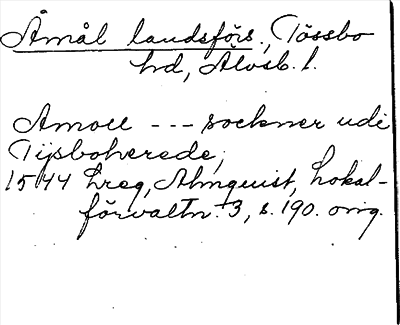 Åmål landsförs., Tössbo
hd, Älvsb. l.
Amoll --- sockner udi
Tijsboherede,
1544 Lreg, Almquist, Lokal-
förvaltn. 3, s. 190. orig.